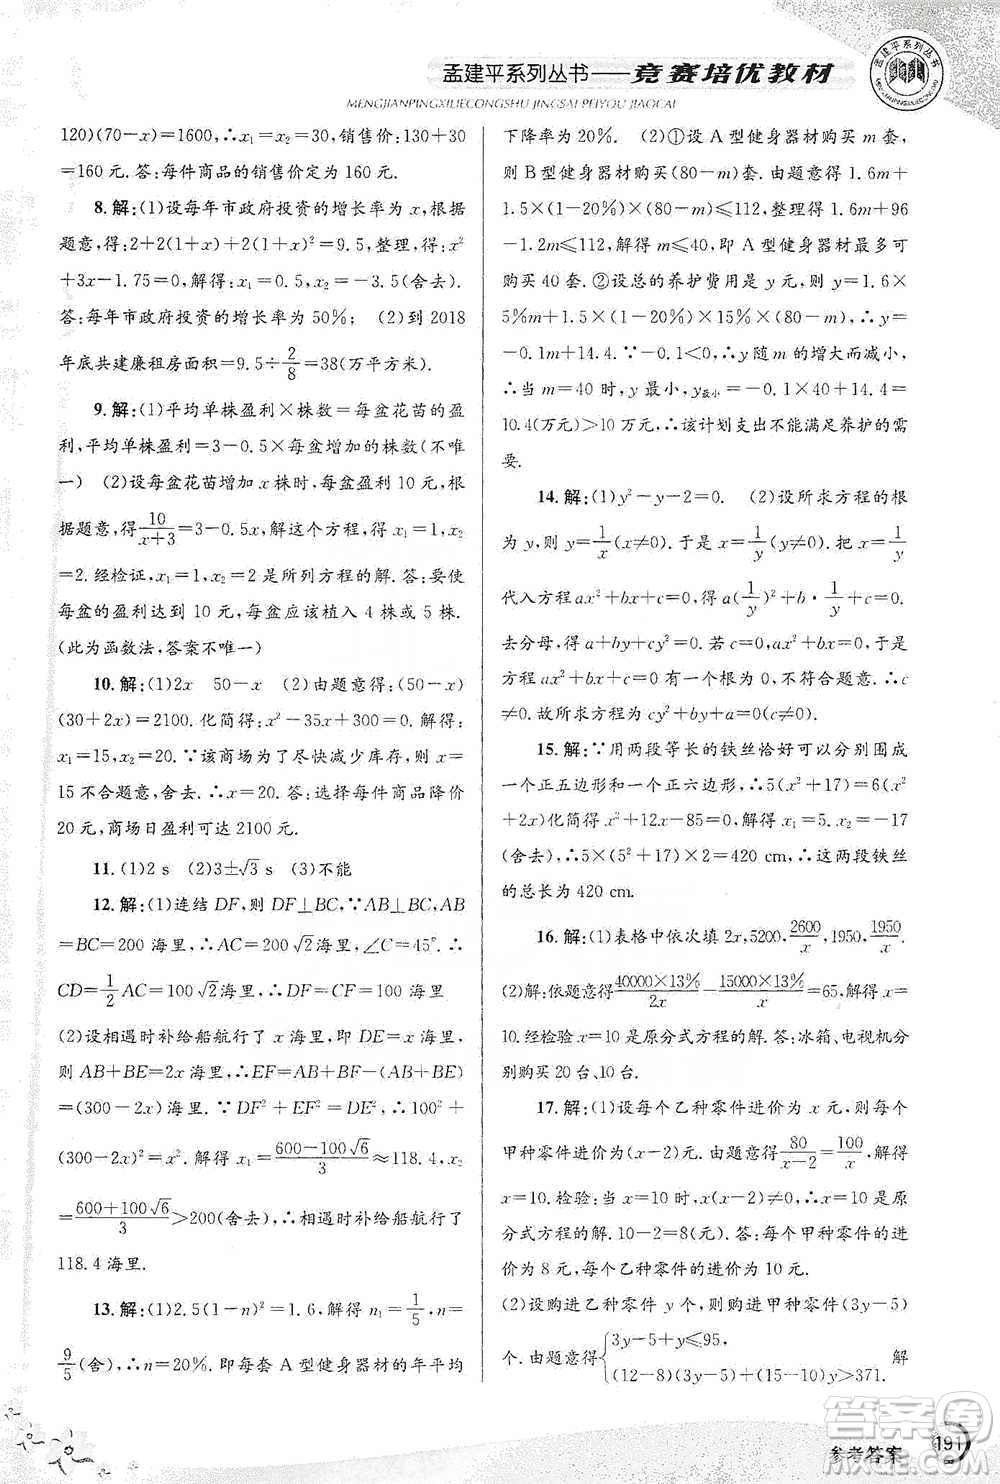 孟建平系列丛书——竞赛培优教材
MENGJIANPINGXILIECONGSHU JINGSAI PEIYOU JIAOCAI
孟建平系列丛书
120)(70－x)＝1600,∴x₁＝x₂＝30,销售价:130＋30
＝160 元. 答:每件商品的销售价定为 160 元.
8. 解:(1)设每年市政府投资的增长率为 x,根据
题意,得:2＋2(1＋x)＋2(1＋x)²＝9.5,整理,得:x²
＋3x－1.75＝0,解得:x₁＝0.5,x₂＝－3.5(舍去).
答:每年市政府投资的增长率为 50%; (2)到 2018
年底共建廉租房面积＝9.5÷2/8＝38(万平方米).
9. 解:(1)平均单株盈利×株数＝每盆花苗的盈
利,平均单株盈利＝3－0.5×每盆增加的株数(不唯
一) (2)设每盆花苗增加 x 株时,每盆盈利 10 元,根
据题意,得10/(x＋3)＝3－0.5x,解这个方程,得 x₁＝1,x₂
＝2. 经检证,x₁＝1,x₂＝2 是所列方程的解. 答:要使
每盆的盈利达到 10 元,每盆应该植入 4 株或者 5 株.
(此为函数法,答案不唯一)
10. 解:(1)2x 50－x (2)由题意得:(50－x)
(30＋2x)＝2100. 化简得:x²－35x＋300＝0. 解得:
x₁＝15,x₂＝20. ∵该商场为了尽快减少库存,则 x＝
15 不合题意,舍去. ∴x＝20. 答:选择每件商品降价
20 元,商场日盈利可达 2100 元.
11. (1)2 s (2)3±√3 s (3)不能
12. 解:(1)连结 DF,则 DF⊥BC,∵AB⊥BC,AB
＝BC＝200 海里,∴AC＝200√2海里,∠C＝45°. ∴
CD＝1/2 AC＝100√2海里,∴DF＝CF＝100 海里
(2)设相遇时补给船航行了 x 海里,即 DE＝x 海里,
则 AB＋BE＝2x 海里. ∴EF＝AB＋BC－(AB＋BE)－CF
＝(300－2x)海里. ∵DF²＋EF²＝DE²,∴100²＋
(300－2x)²＝x². 解得 x₁＝(600－100√6)/3≈118.4,x₂
＝(600＋100√6)/3＞200(舍去),∴相遇时补给船航行了
118.4 海里.
13. 解:(1)2.5(1－n)²＝1.6,解得 n₁＝1/5,n₂＝
9/5(舍),∴n＝20%. 即每套 A 型健身器材的年平均
下降率为 20%. (2)①设 A 型健身器材购买 m 套,
则 B 型健身器材购买(80－m)套. 由题意得:1.6m＋
1.5×(1－20%)×(80－m)≤112,整理得 1.6m＋96
－1.2m≤112,解得 m≤40,即 A 型健身器材最多可
购买 40 套. ②设总的养护费用是 y 元,则 y＝1.6×
5%m＋1.5×(1－20%)×15%×(80－m),∴y＝
－0.1m＋14.4. ∵－0.1＜0,∴y 随 m 的增大而减小,
∴当 m＝40 时,y 最小,y最小＝－0.1×40＋14.4＝
10.4(万元)＞10 万元,∴该计划支出不能满足养护的需
要.
14. 解:(1)y²－y－2＝0. (2)设所求方程的根
为 y,则 y＝1/x(x≠0). 于是 x＝1/y(y≠0). 把 x＝1/y
代入方程 ax²＋bx＋c＝0,得 a(1/y)²＋b·1/y＋c＝0.
去分母,得 a＋by＋cy²＝0. 若 c＝0,ax²＋bx＝0,于是
方程 ax²＋bx＋c＝0 有一根为 0,不符合题意. ∴c
≠0. 故所求方程为 cy²＋by＋a＝0(c≠0).
15. 解:∵用两段等长的铁丝恰好可以分别围成
一个正五边形和一个正六边形,∴5(x²＋17)＝6(x²
＋2x)化简得 x²＋12x－85＝0. 解得 x₁＝5. x₂＝－17
(舍去). ∴5×(5²＋17)×2＝420 cm,∴这两段铁丝
的总长为 420 cm.
16. 解:(1)表格中依次填 2x,5200,2600/x,1950,1950/x.
(2)解:依题意得(40000×13%)/2x－(15000×13%)/x＝65,解得 x＝
10. 经检验 x＝10 是原分式方程的解. 答:冰箱、电视机分
别购买 20 台、10 台.
17. 解:(1)设每个乙种零件进价为 x 元,则每个
甲种零件进价为(x－2)元. 由题意得80/(x－2)＝100/x. 解得
x＝10. 检验:当 x＝10 时,x(x－2)≠0,∴x＝10 是原
分式方程的解. 10－2＝8(元). 答:每个甲种零件的进
价为 8 元,每个乙种零件的进价为 10 元.
(2)设购进乙种零件 y 个,则购进甲种零件(3y－5)
个. 由题意得{3y－5＋y≤95,
(12－8)(3y－5)＋(15－10)y＞371. 解
参考答案 191
答案圈
MXQE.COM